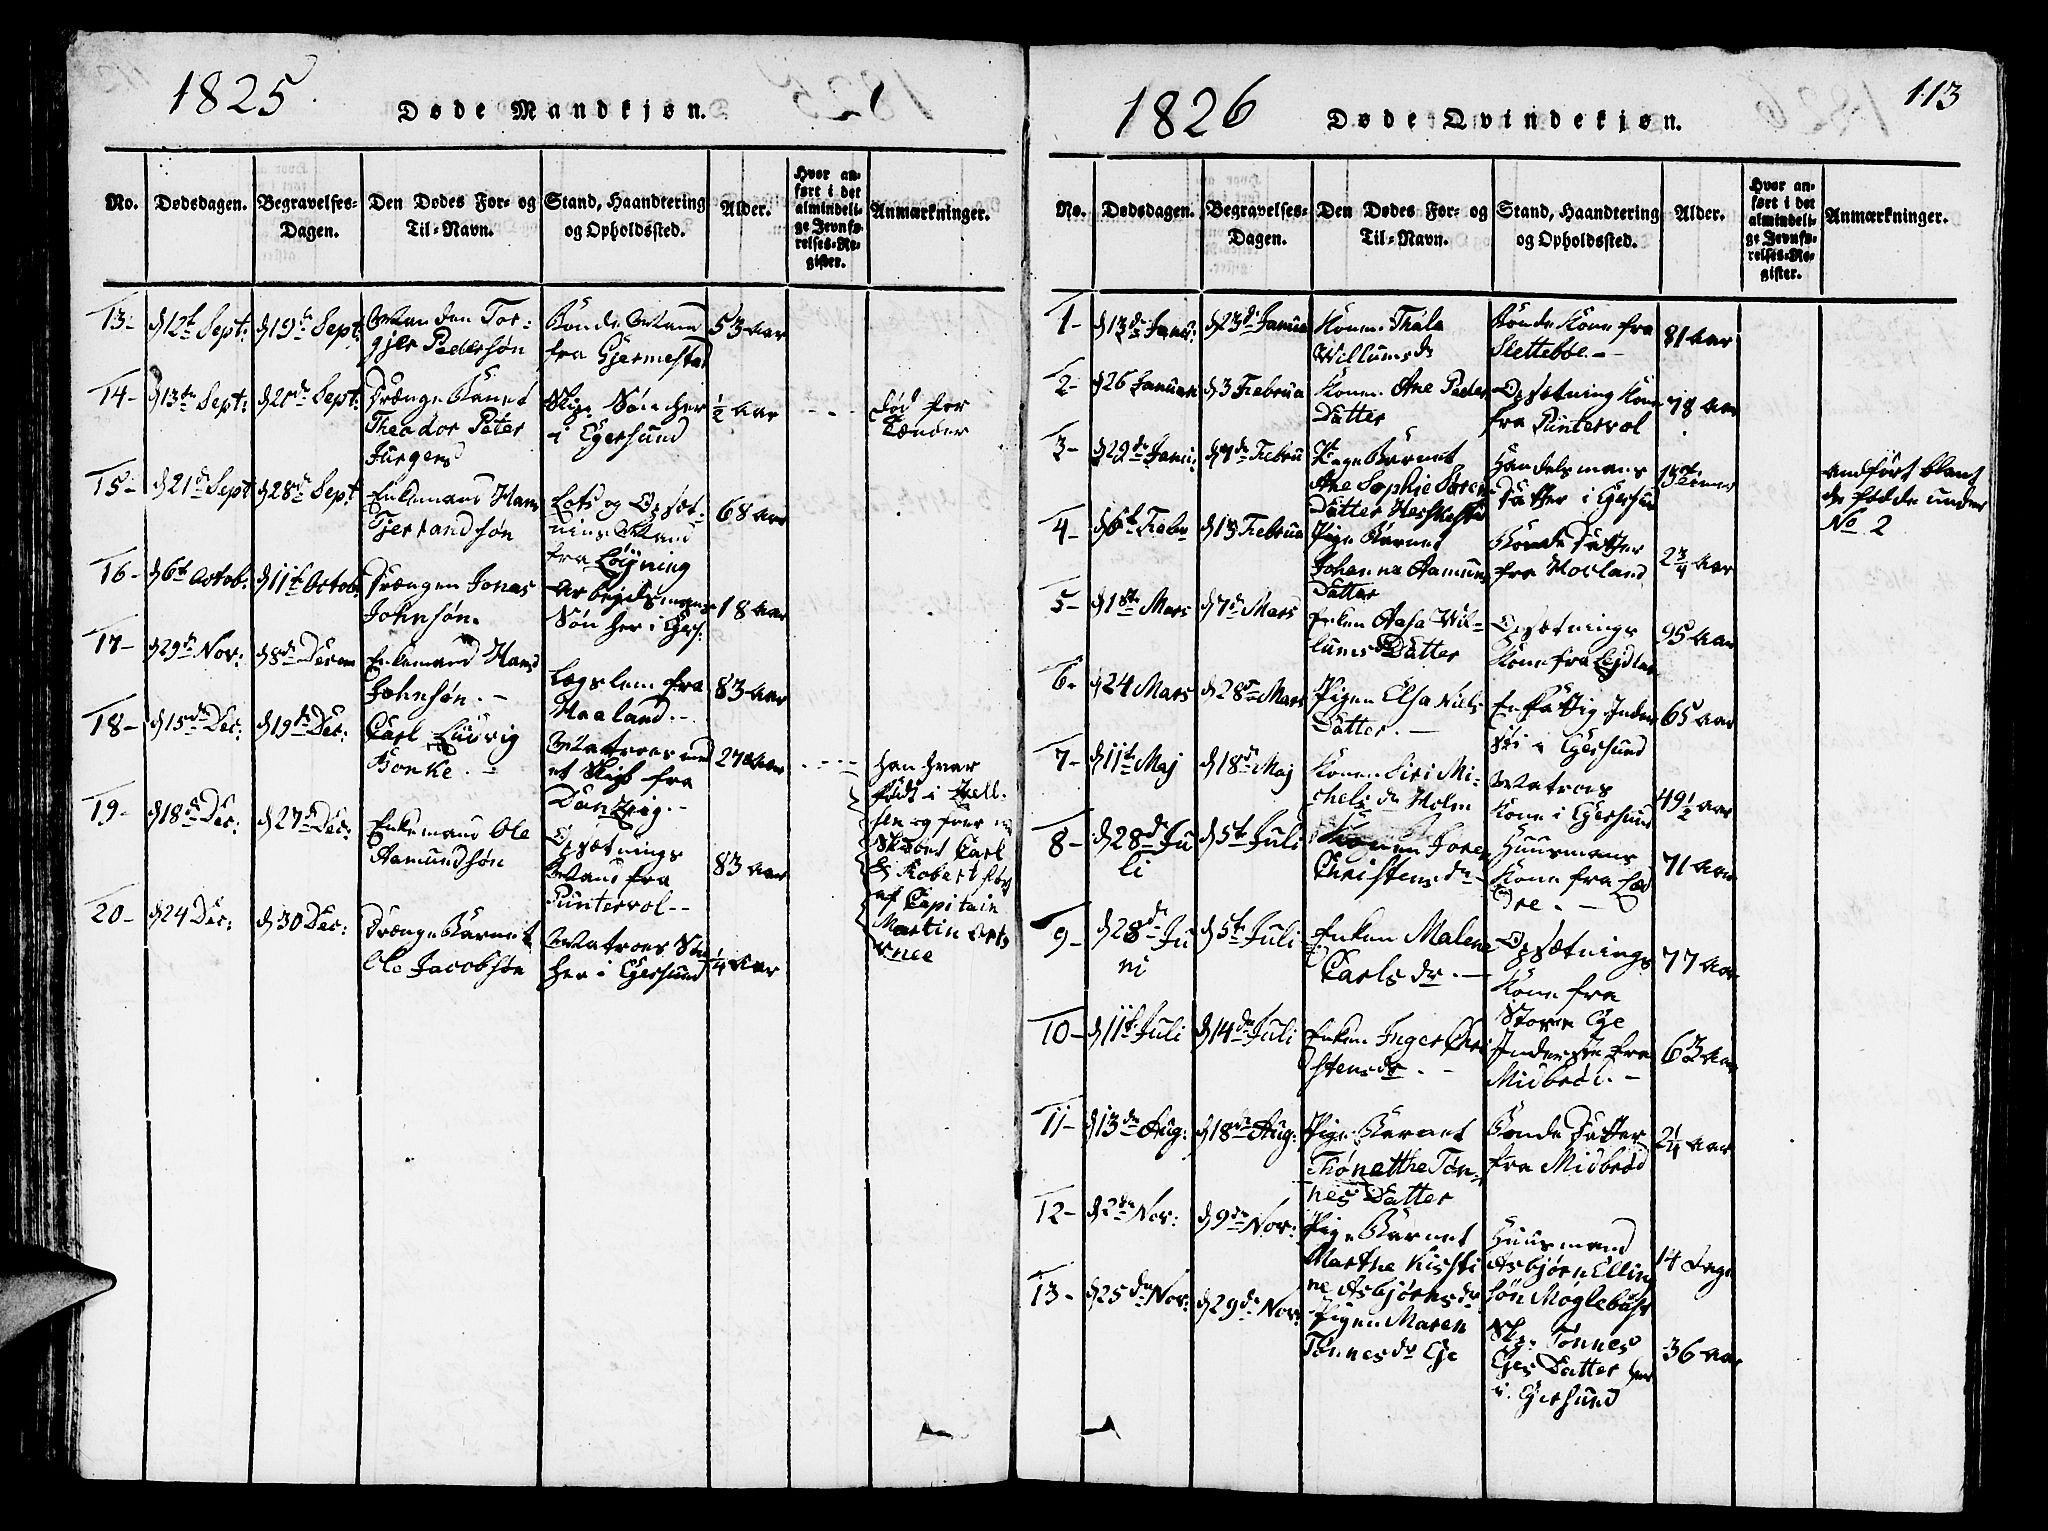 1825.
Døde Mandkjøn.
No.
Dødsdagen.
Begravelses-
Dagen.
Den Dødes For- og
Til-Navn.
Stand, Haandtering
og Opholdssted.
Alder.
Hvor an-
ført i det
almindeli-
ge Jevnfø-
relses-Re-
gister.
Anmærkninger.
13-
d 12t Sept:
d 19de Sept:
Manden Tor-
gjer Pedersøn
Bonde Mand
fra Gjermestad
53 Aar
14-
d 13de Sept:
d 21de Sept:
Drænge Barnet
Theodor Peter
Jürgens
Skip. Søn her
i Egersund
½ Aar
død for
Tænder
15-
d 21de Sept
d 28de Sept
Enkemand Hans
Tjerlandsøn
Lots og Opsæt-
nins Mand
fra Løyning
68 Aar
16-
d 6te Octob:
d 11te Octob:
Drængen Jonas
Johnsøn.
Arbejdsmans
Søn her i Egers.
18 Aar
17-
d 29de Nov:
d 8de Decem
Enkemand Hans
Johnsøn. -
Lægslem fra
Haaland. -
83 Aar
18-
d 15de Dec:
d 19de Dec:
Carl Ludvig
Bonke. -
Matroes med
et Skib fra
Dantzig. -
27 Aar
han var
født i
og foer med
Carl
Robert
af Capitain
Martin
19-
d 18de Dec:
d 27de Dec:
Enkemand Ole
Aamundsøn
Opsætnings
Mand fra
Puntervol -
83 Aar
20-
d 24 Dec:
d 30 Dec:
Drænge Barnet
Ole Jacobsøn
Matroes Søn
her i Egersund
¼ Aar
1826
Døde Qvindekjøn.
113
No.
Dødsdagen.
Begravelses-
Dagen.
Den Dødes For- og
Til-Navn.
Stand, Haandtering
og Opholdssted.
Alder.
Hvor an-
ført i det
almindeli-
ge Jevnfø-
relses-Re-
gister.
Anmærkninger.
1-
d 13de Janu:
d 23de Janua
Konen Thala
Willumsdr
Bonde Kone fra
Slettebøe -
81 Aar
2-
d 26 Januar
d 3 Februa
Konen Ane Peder
Datter
Opsætning Kone
fra Puntervol
78 Aar
3-
d 29de Janu:
d 7de Februa
Pige Barnet
Ane Sophie Søren
Datter
Handelsmans
Datter i Egersund
andført blant
de fødde under
No 2
4-
d 6te Febr
d 13 Februa
Pige Barnet
Johanna Aamunds
Datter
Bonde Datter
fra Hovland
2¾ Aar
5-
d 1ste Mars
d 7de Mars
Enken Aasa Wil-
lums Datter
Opsætnings
Kone fra
95 Aar
6-
d 24 Mars
d 28de Mars
Pigen Elsa Niels
Datter. -
En Fattig Inder
i Egersund
65 Aar
7-
d 11te Maj
d 18de Maj
Konen Siri Mi-
chels dr Holm
Matroes
Kone i Egersund
49½ Aar
8-
d 28de Ju
li
d 5te Juli
Konen Joren
Christensdr -
Huusmans
Kone fra Læd
dre. -
71 Aar
9-
d 28de Ju
ni
d 5te Juli
Enken Malena
Carls dr. -
Opsætnings
Kone fra
Store Ege
77 Aar
10-
d 11te Juli
d 14de Juli
Enken Inger Chri
stensdr. -
Inderste fra
Midbrød. -
63 Aar
11-
d 13de Aug:
d 18de Aug:
Pige Barnet
Thønetthe Tøn-
nes Datter
Bonde Datter
fra Midbrød
2¼ Aar
12-
d 2de Nov:
d 9de Nov:
Pige Barnet
Marthe Kisti
ne Asbjørnsdr
Huusmand
Asbjørn Elling
søn Møglebust
14 Dage
13-
d 25de Nov:
d 29de Nov:
Pigen Maren
Tønnesdr Ege
Skp. Tønnes
Eges Datter her
i Egersund
36 Aar